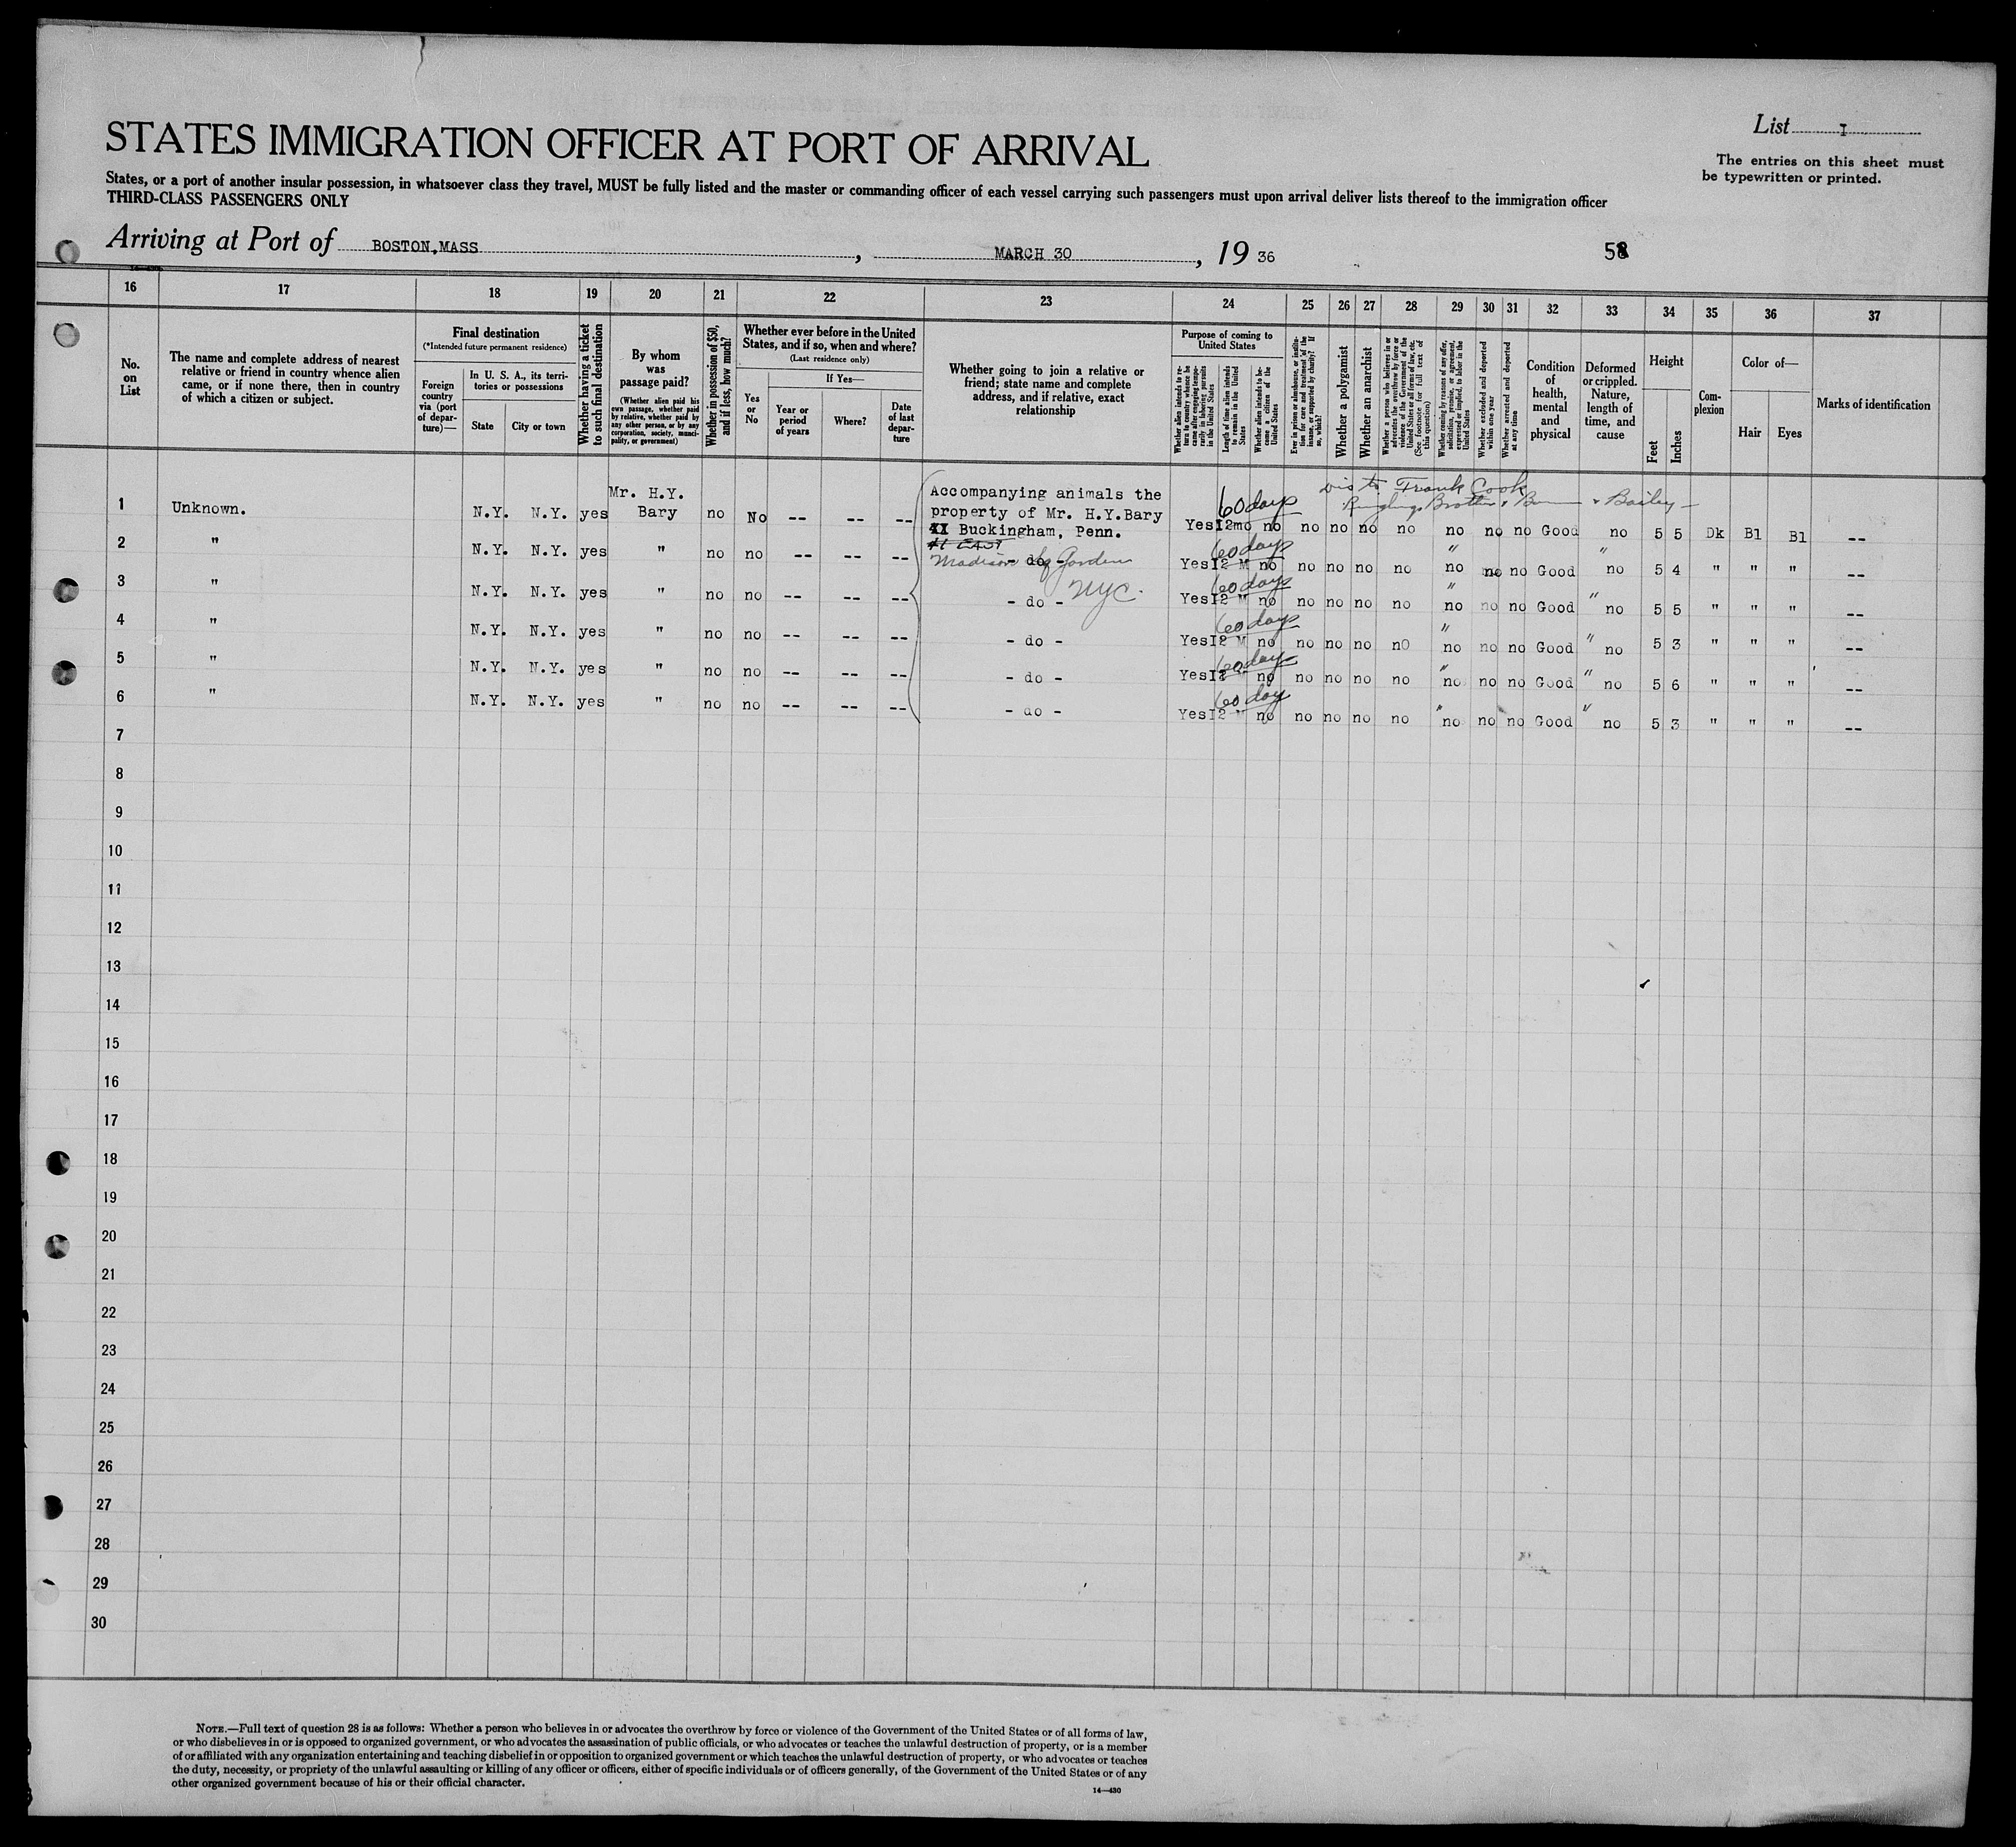 List I
The entries on this sheet must
be typewritten or printed.
STATES IMMIGRATION OFFICER AT PORT OF ARRIVAL
States, or a port of another insular possession, in whatsoever class they travel, MUST be fully listed and the master or commanding officer of each vessel carrying such passengers must upon arrival deliver lists thereof to the immigration officer
THIRD-CLASS PASSENGERS ONLY
Arriving at Port of BOSTON,MASS , MARCH 30 , 19 36
16 17 18 19 20 21 22 23 24 25 26 27 28 29 30 31 32 33 34 35 36 37
No.
on
List
The name and complete address of nearest
relative or friend in country whence alien
came, or if none there, then in country
of which a citizen or subject.
Final destination
(*Intended future permanent residence)
Foreign
country
via (port
of depar-
ture)—
In U. S. A., its terri-
tories or possessions
State City or town
Whether having a ticket
to such final destination
By whom
was
passage paid?
(Whether alien paid his
own passage, whether paid
by relative, whether paid by
any other person, or by any
corporation, society, munici-
pality, or government)
Whether in possession of $50,
and if less, how much?
Whether ever before in the United
States, and if so, when and where?
(Last residence only)
Yes
or
No
If Yes—
Year or
period
of years
Where?
Date
of last
depar-
ture
Whether going to join a relative or
friend; state name and complete
address, and if relative, exact
relationship
Purpose of coming to
United States
Whether alien intends to re-
turn to country whence he
came after engaging tempo-
rarily in laboring pursuits
in the United States
Length of time alien intends
to remain in the United
States
Whether alien intends to be-
come a citizen of the
United States
Ever in prison or almshouse, or institu-
tion for care and treatment of the
insane, or supported by charity? If
so, which?
Whether a polygamist
Whether an anarchist
Whether a person who believes in or
advocates the overthrow by force or
violence of the Government of the
United States or all forms of law, etc.
(See footnote for full text of
this question)
Whether coming by reasons of any offer,
solicitation, promise, or agreement,
expressed or implied, to labor in the
United States
Whether excluded and deported
within one year
Whether arrested and deported
at any time
Condition
of
health,
mental
and
physical
Deformed
or crippled.
Nature,
length of
time, and
cause
Height
Feet
Inches
Com-
plexion
Color of—
Hair Eyes
Marks of identification
Frank Cook
Ringling Brothers & Bailey
1 Unknown. N.Y. N.Y. yes Mr. H.Y.
Bary no No -- -- -- Accompanying animals the
property of Mr. H.Y.Bary
Buckingham, Penn.
60 days
Yes I2mo no no no no no no no no Good no 5 5 Dk Bl Bl --
2 " N.Y. N.Y. yes " no no -- -- -- - do -
Madison Sq Garden
NYC.
60 days
Yes I2 M no no no no no no " no no Good " no 5 4 " " " --
3 " N.Y. N.Y. yes " no no -- -- -- - do -
60 days
Yes I2 " no no no no no no " no no Good " no 5 5 " " " --
4 " N.Y. N.Y. yes " no no -- -- -- - do -
60 days
Yes I2 M no no no no nO no " no no Good " no 5 3 " " " --
5 " N.Y. N.Y. yes " no no -- -- -- - do -
60 days
Yes I2 " no no no no no no " no no Good " no 5 6 " " " --
6 " N.Y. N.Y. yes " no no -- -- -- - do -
60 day
Yes I2 " no no no no no no " no no Good " no 5 3 " " " --
7
8
9
10
11
12
13
14
15
16
17
18
19
20
21
22
23
24
25
26
27
28
29
30
NOTE.—Full text of question 28 is as follows: Whether a person who believes in or advocates the overthrow by force or violence of the Government of the United States or of all forms of law,
or who disbelieves in or is opposed to organized government, or who advocates the assassination of public officials, or who advocates or teaches the unlawful destruction of property, or is a member
of or affiliated with any organization entertaining and teaching disbelief in or opposition to organized government or which teaches the unlawful destruction of property, or who advocates or teaches
the duty, necessity, or propriety of the unlawful assaulting or killing of any officer or officers, either of specific individuals or of officers generally, of the Government of the United States or of any
other organized government because of his or their official character.
14—430